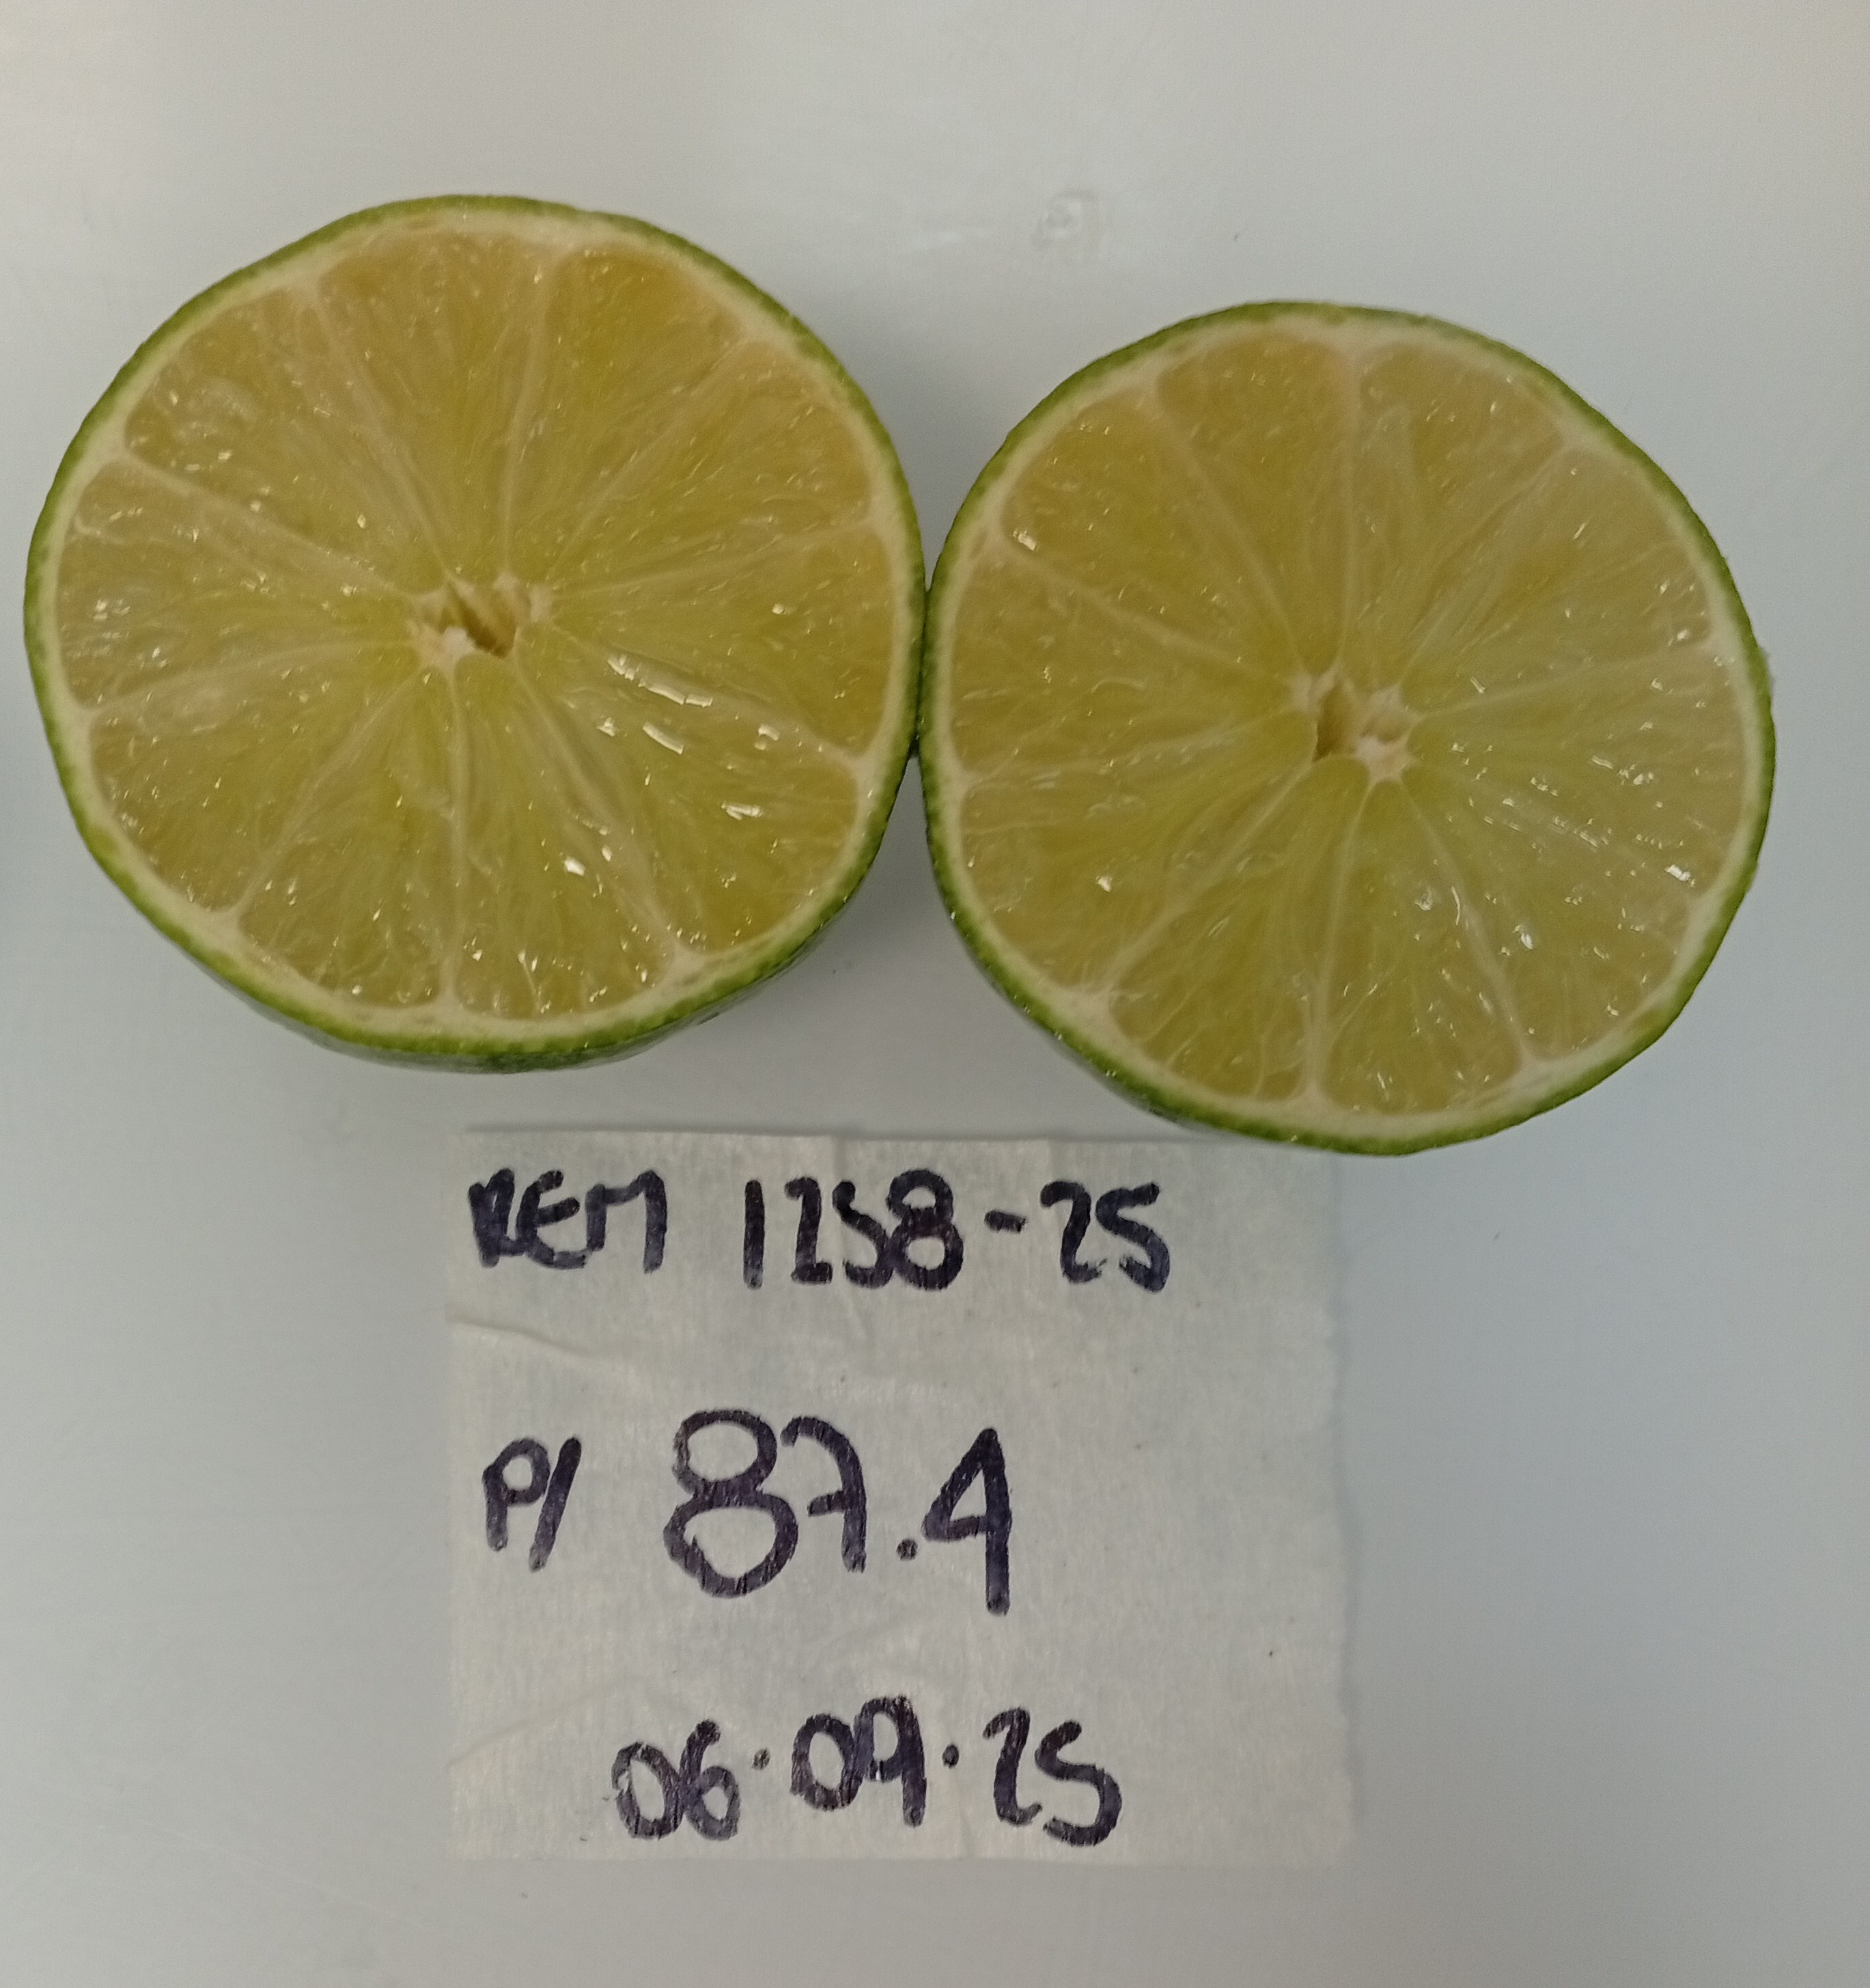 REM 1258-25
P/ 87.4
06.09.25